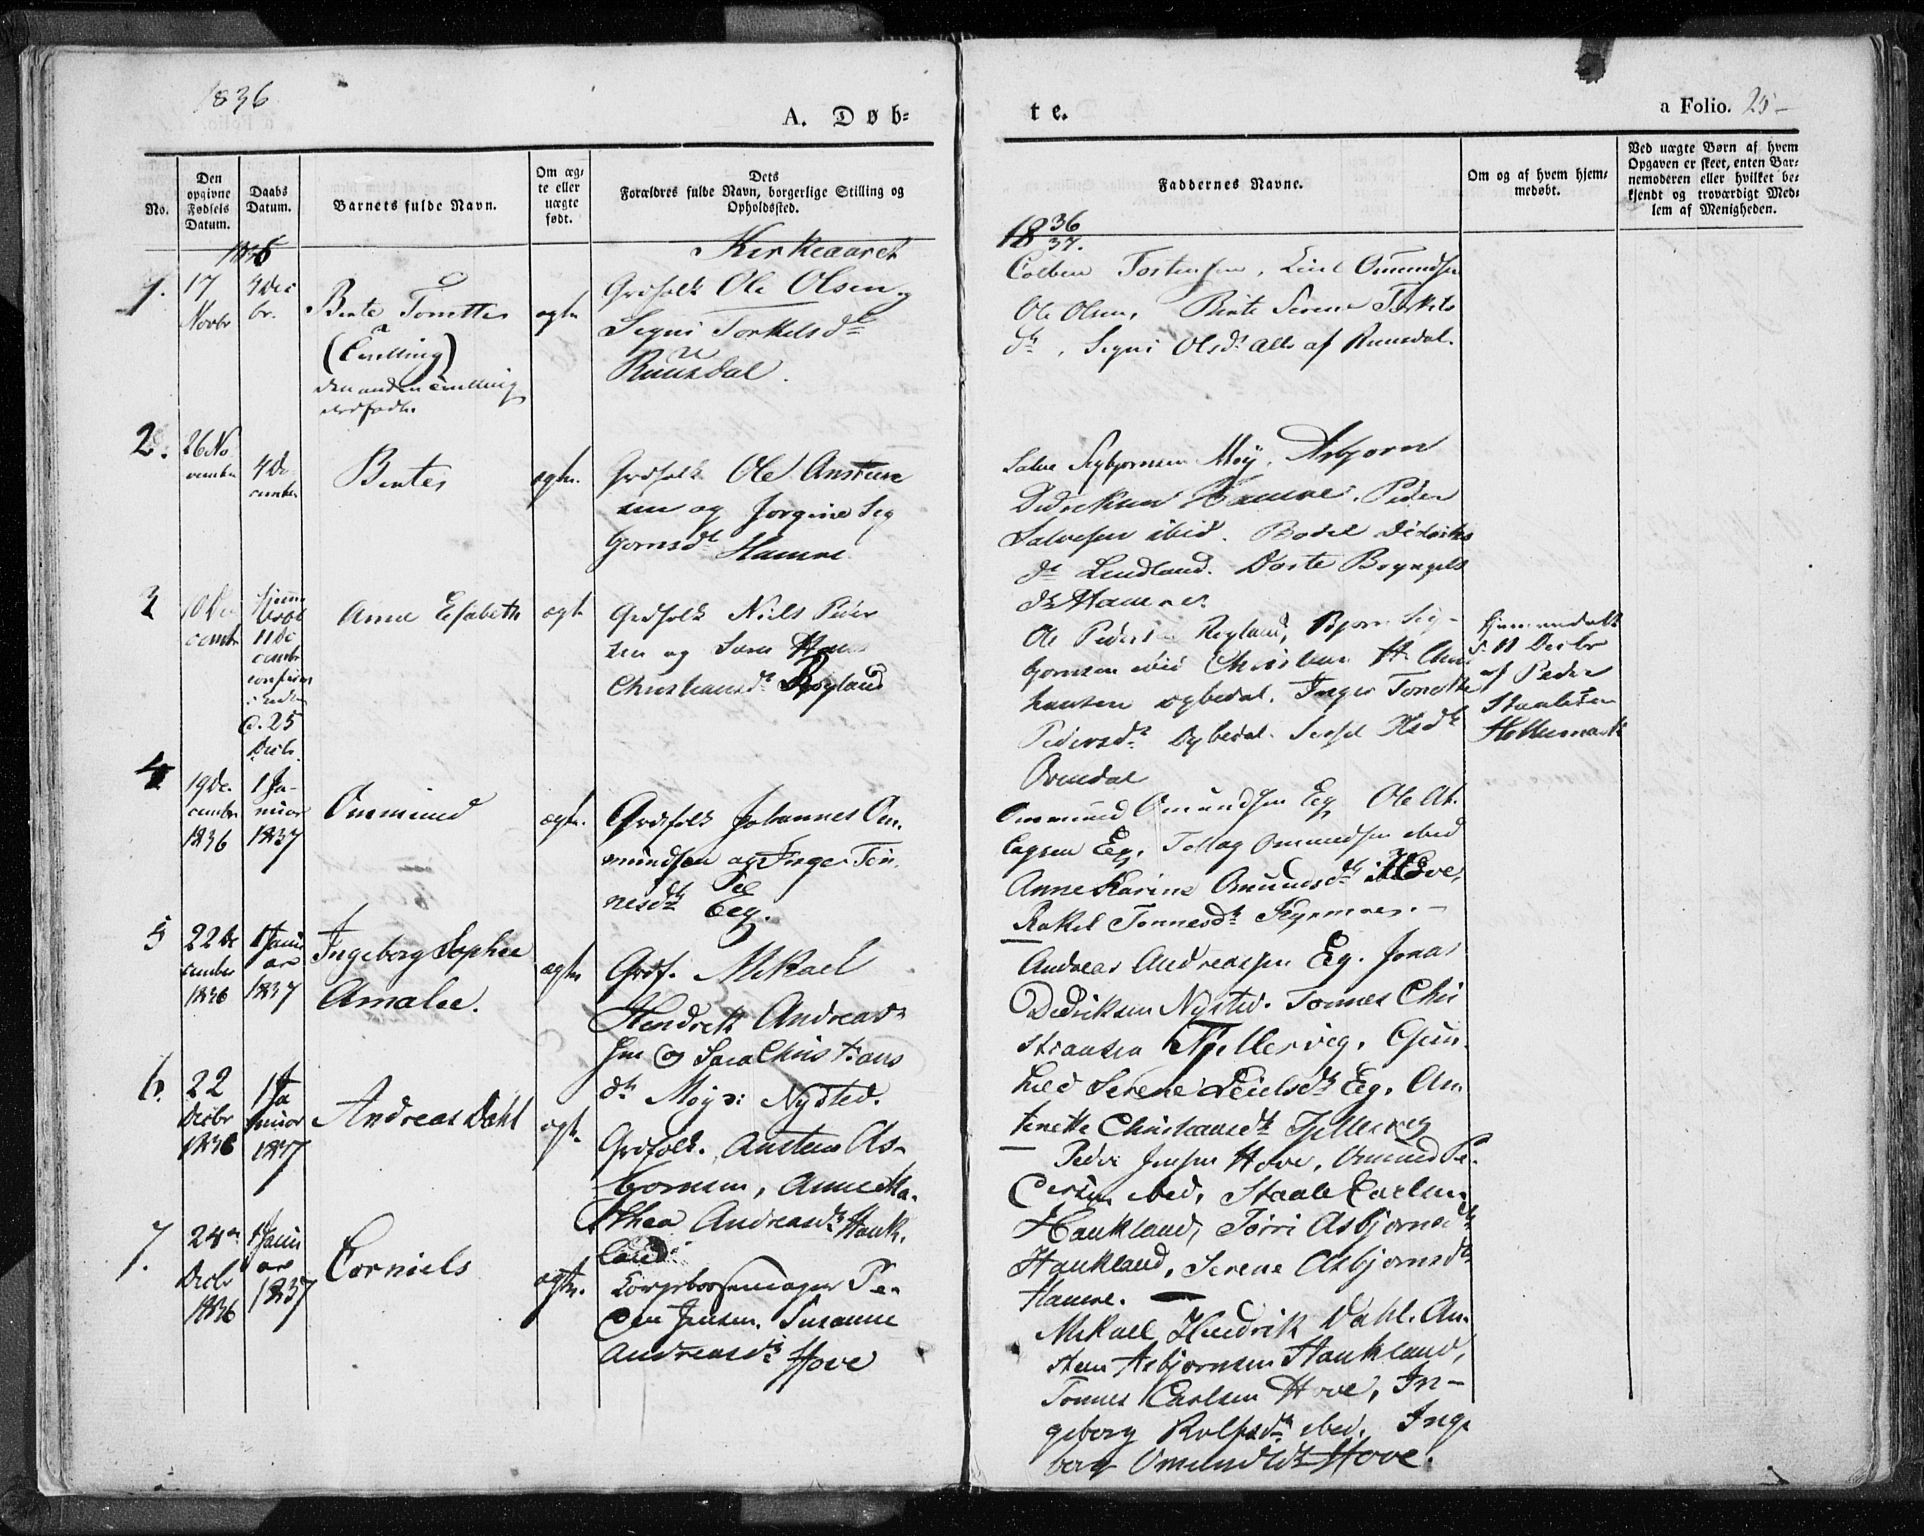 1836
A. Døb=
te.
a Folio. 25
No.
Den opgivne Fødsels Datum.
Daabs Datum.
Barnets fulde Navn.
Om æg-
te eller
uægte
født.
Dets
Forældres fulde Navn, borgerlige Stilling og
Opholdssted.
Faddernes Navne.
Om og af hvem hjem-
medøbt.
Ved uægte Børn af hvem
Opgaven er skeet, enten Bar-
nemoderen eller hvilket be-
kjendt og troværdigt Med-
lem af Menigheden.
1836
Kirkeaaret
18 36
37.
1.
17
Novbr
4 Dec
br.
Bente Tonette
(Tvilling)
den anden Tvilling
dødfødt.
ægte
Grdfolk Ole Olsen
Signi Torkelsdtr
Ruusdal.
Ole Olsen, Bente Serene Torkels
dtr, Signi Olsdr alle af Ruusdal.
2.
26 No
vember
4 De
cember
Bente
ægte.
Grdfolk Ole Austen
sen og Jorgine Sig
bjornsdtr Hamre
Salve Sigbjornsen Moy, Asbjorn
Didriksen Hamre, Peder
Salvesen ibid. Bodel Didriks
dtr Lindland. Dorte Bryngels
dtr Hamre.
3
10 De
cembr
hjemme
døbt
11 De
cembr
confirm
Kirken
d. 25
Decb.
Anne Elsabeth
ægte
Grdfolk Niels Peder
sen og Sara
Christiansdr Røyland
Ole Pedersen Røyland, Bjorn Sig-
bjornsen ibid Christian H. Chri
hansen Dybedal. Inger Tonette
Pedersdr Dybedal. Sissel Olsdtr
Ovendal
hjemmedøbt
d. 11 Decbr
af Peder
Staalesen
4
19 De.
cember
1836
1 Ja-
nuar
1837
Ommund
ægte.
Grdfolk Johannes Om.
mundsen og Inger Tøn.
nesdtr Eeg.
Ommund Omundsen Eeg Ole At.
lagsen Eeg, Tollag Ommundsen ibid
Anne Karine Omundsdtr Hove,
Rakel Tonnesdtr
5
22 De
cember
1836
1 Janu
ar
1837
Ingeborg Sophie
Amalie.
ægte
Grdf. Mikael
Hendrik Andreas
sen og Sara Christians
dtr Møgs: Nysted.
Andreas Andreassen Eeg. Jonas
Didriksen Nysted. Tonnes Chri
stiansen Fjellervig, Gun.
hild Serene Leielsdtr Eeg, An
tonette Christiansdtr Fjellerveg
6.
22
Decbr
1836
1 Ja
nuar
1837
Andreas Dahl
ægte.
Grdfolk. Austen As-
bjornsen, Anne Ma.
thea Andreasdtr Hauk.
land
Peder Jensen Hove, Omund Pe.
dersen ibid, Staale Carlsen
Haukland, Torri Asbjornsdtr
Haukland, Serene Asbjornsdtr
Hamre.
7.
24
Decbr
1836
1 Janu
ar
1837
Corniels
ægte.
Pe-
der Jensen. Susanne
Andreasdtr Hove
Mikael Hendrik Dahl. Au.
sten Asbjornsen Haukland,
Tonnes Carlsen Hove, In-
geborg Rolfsdtr ibid. Inge
borg Omundsdtr Hove.